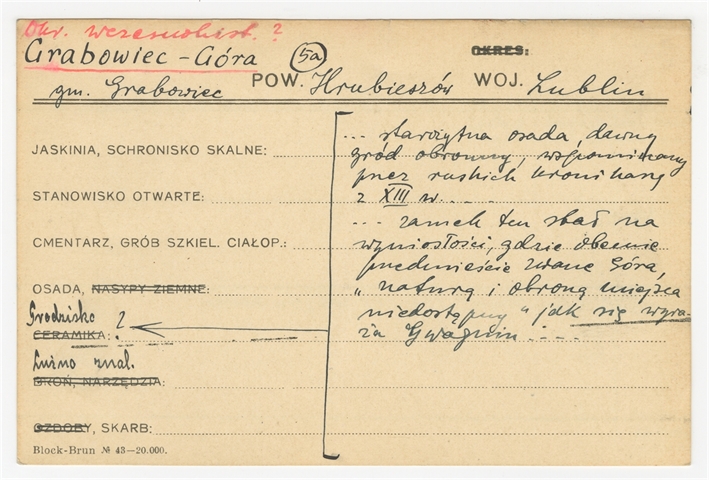 Okr. wczesnohist. ?
Grabowiec - Góra (5a) OKRES:
gm. Grabowiec POW. Hrubieszów WOJ. Lublin
JASKINIA, SCHRONISKO SKALNE:
STANOWISKO OTWARTE:
CMENTARZ, GRÓB SZKIEL. CIAŁOP.:
OSADA, NASYPY ZIEMNE:
Grodzisko
CERAMIKA: ?
Luźno znal.
BROŃ, NARZĘDZIA:
OZDOBY, SKARB:
Block-Brun № 43—20.000.
... starożytna osada, dawny
gród obronny, wspominany
przez ruskich kronikarzy
z XIII w. ....
... zamek ten stał na
wyniosłości, gdzie obecnie
przedmieście zwane Góra,
„naturą i obroną miejsca
niedostępny" jak się wyra-
ża Gwagnin ....